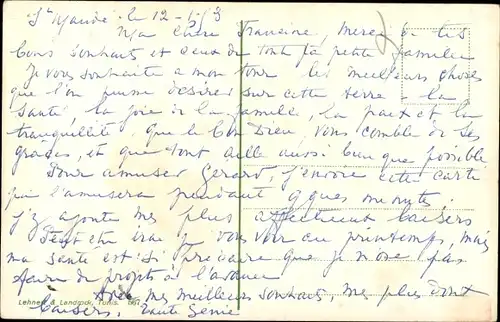 St Mandé le 12-1-53
Ma chère Francine, merci de tes
bons souhaits et ceux de tout ta petite famille
Je vous souhaite a mon tour les meilleurs choses
que l'on puisse desirer sur cette terre - la
santé, la joie de la famille, la paix et la
tranquillité. que le bon Dieu, vous comble de ses
graces, et que tout aille aussi bien que possible
Pour amuser Gerard, j'envoie cette carte
qui l'amusera pendant qques minutes.
j'y ajoute mes plus affectueux baisers
Peut etre irai je vous voir au printemps, mais
ma santé est si précaire que je n'ose pas
faire de projets a l'avance
Avec mes meilleurs souhaits, mes plus doux
Lehnert & Landrock, Tunis.
baisers, tante Génie